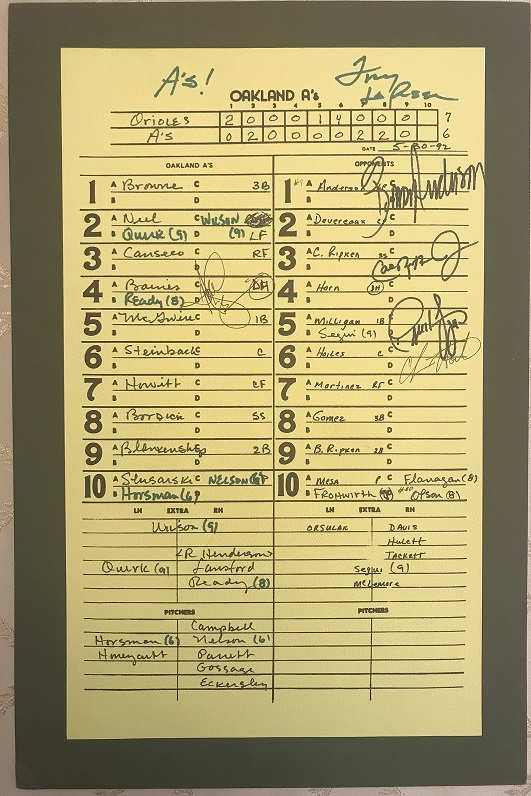 A's!
Tony LaRussa
OAKLAND A's
1 2 3 4 5 6 7 8 9 10
Orioles 2 0 0 0 1 4 0 0 0 7
A's 0 2 0 0 0 0 2 2 0 6
DATE 5-30-92
OAKLAND A'S OPPONENTS
1 A Browne C 3B 1 A Anderson C
B D B D
2 A Neel C WILSON 2 A Devereaux C
B Quirk (9) (9) LF B D
3 A Canseco C RF 3 A C. Ripken SS C
B D B D
4 A Baines C DH 4 A Horn DH C
B Ready (8) D B D
5 A McGwire C 1B 5 A Milligan 1B C
B D B Segui (9) D
6 A Steinbach C 6 A Hoiles C
B D B D
7 A Howitt C CF 7 A Martinez RF C
B D B D
8 A Bordick C SS 8 A Gomez 3B C
B D B D
9 A Blankenship 2B 9 A B. Ripken 2B C
B D B D
10 A Slusarski C NELSON 10 A Mesa P C Flanagan (8)
B Horsman (6) B FROHWIRTH Olson (8)
LH EXTRA RH LH EXTRA RH
Wilson (9) ORSULAK DAVIS
R. Henderson Hulett
TACKETT
Quirk (9) Lansford Segui (9)
Ready (8) McLemore
PITCHERS PITCHERS
Campbell
Horsman (6) Nelson (6)
Honeycutt Parrett
Gossage
Eckersley